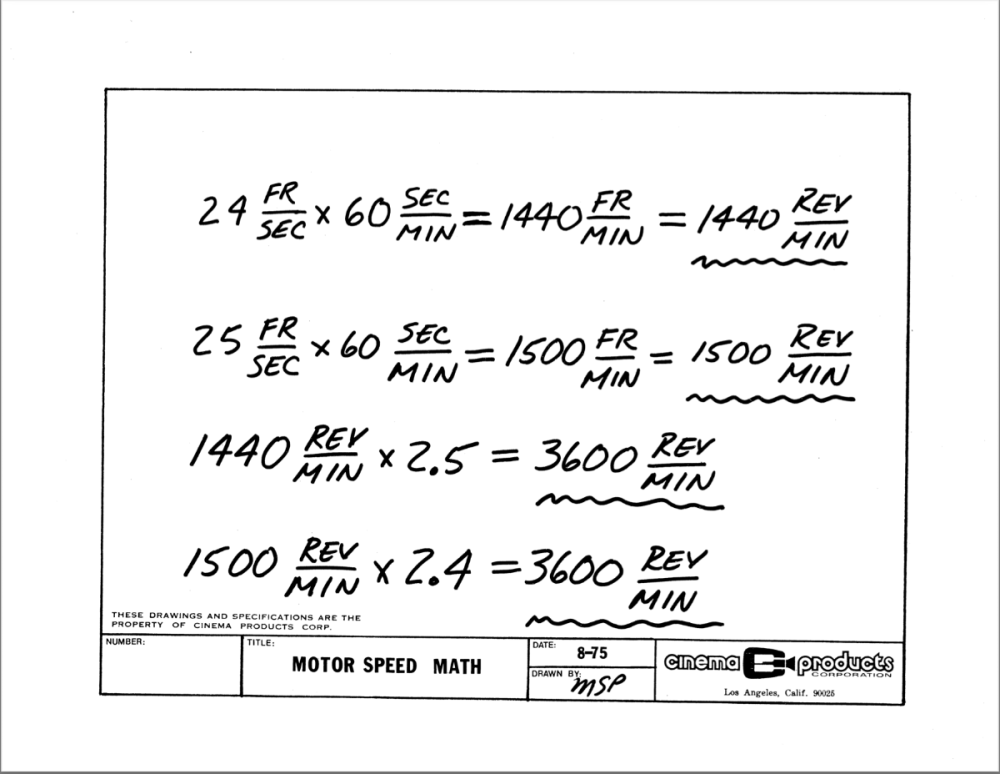 24 FR/SEC x 60 SEC/MIN = 1440 FR/MIN = 1440 REV/MIN
25 FR/SEC x 60 SEC/MIN = 1500 FR/MIN = 1500 REV/MIN
1440 REV/MIN x 2.5 = 3600 REV/MIN
1500 REV/MIN x 2.4 = 3600 REV/MIN
THESE DRAWINGS AND SPECIFICATIONS ARE THE
PROPERTY OF CINEMA PRODUCTS CORP.
NUMBER:
TITLE:
MOTOR SPEED MATH
DATE:
8-75
DRAWN BY:
MSP
cinema products
CORPORATION
Los Angeles, Calif. 90025